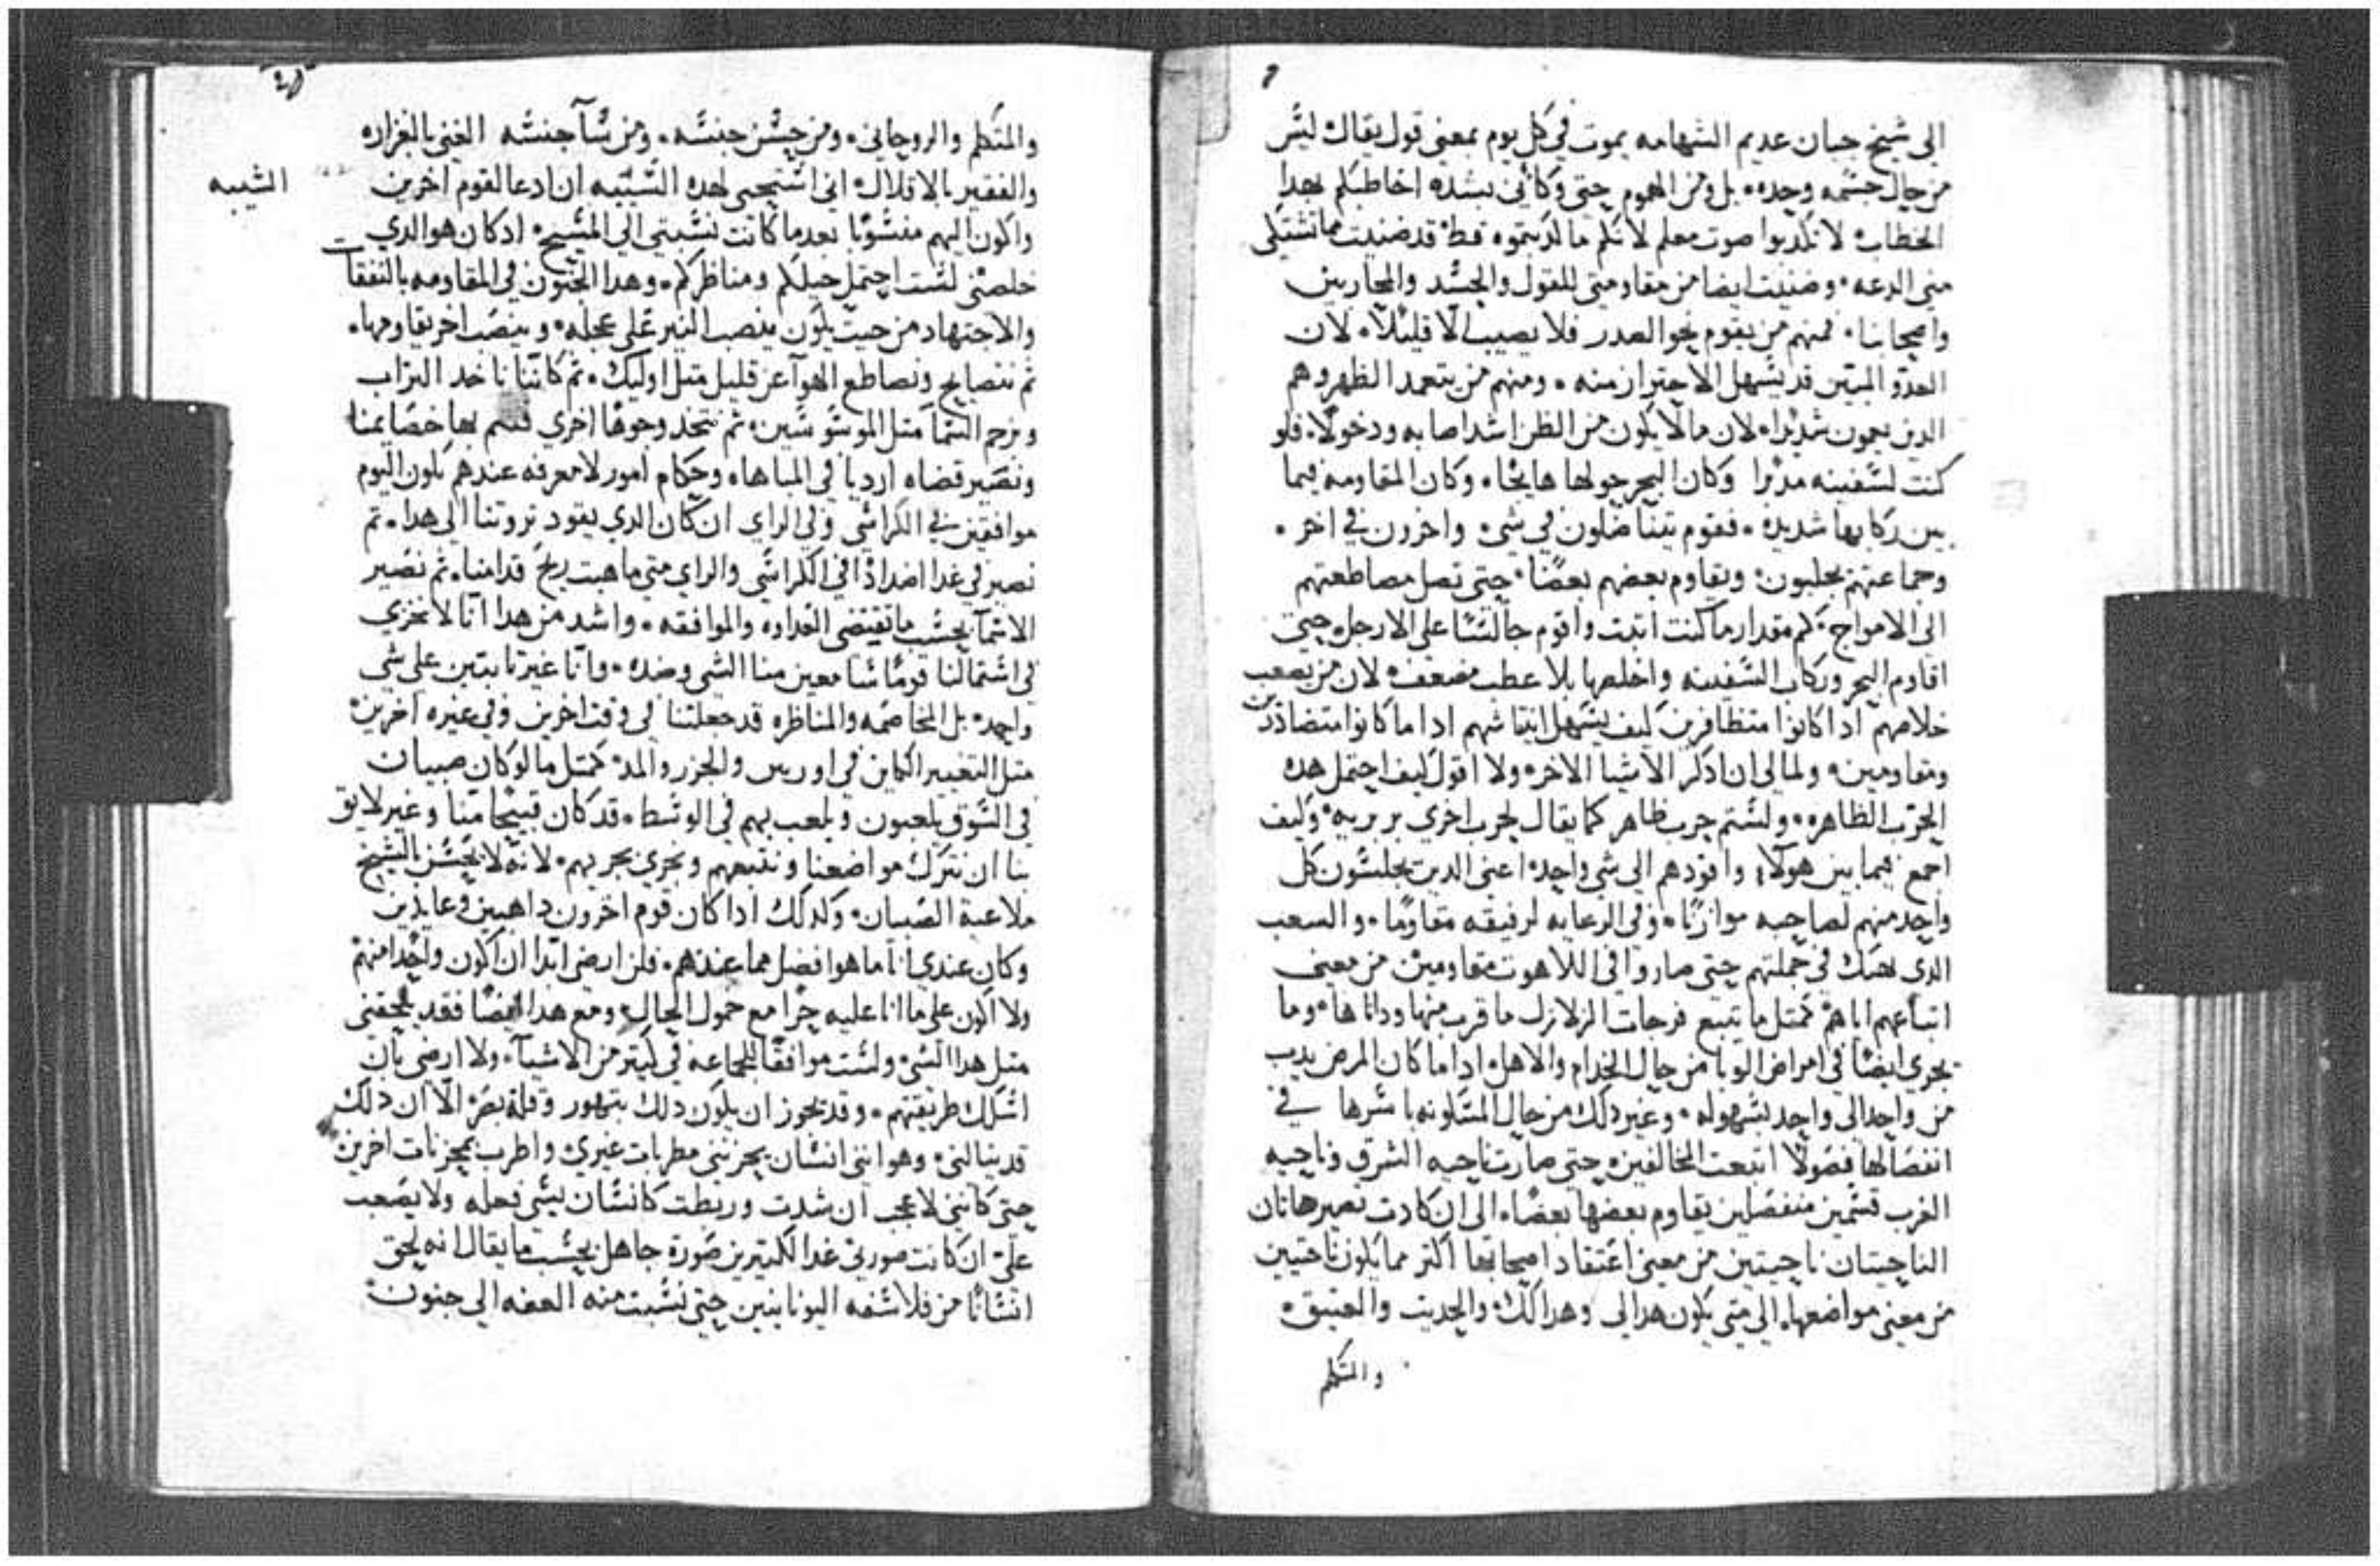 الى شيخ جبان عديم الشهامه يموت في كل يوم بمعنى قول يقال ليس
من حال جسمه وحده بل ومن الهموم حتى وكأني بشده اخاطبكم بهدا
الخطاب لا تكدبوا صوت معلم لا تكلم ما لدبتموه قط قد ضنيت مما تشتكى
مني الدعه وضنيت ايضا من مقاومتي للقول والحسد والمحاربين
واصحابنا فمنهم من يقوم نحو الصدر فلا يصيب الا قليلا لان
العدو المبين قد يسهل الاحتراز منه ومنهم من يتعمد الظهر وهم
الدين يعمون شديدا لان ما لا يكون من الظن اشد اصابه ودخولا فلو
كنت لسفينه مدبرا وكان البحر حولها هايجا وكان المقاومه فيما
بين ركابها شديده فقوم يتناضلون في شى واخرون في اخر
وجماعتهم يجلبون ويقاوم بعضهم بعضا حتى تصل مصاطعتهم
الى الامواج كم مقدار ما كنت اتبت واقوم جالسا على الارجل حتى
اقاوم البحر وركاب السفينه واخلصها بلا عطب مضعف لان من يصعب
خلاصهم ادا كانوا متظافرين كيف يسهل انتياشهم ادا ما كانوا متضاددين
ومقاومين ولمالي ان ادكر الاشيا الاخر ولا اقول كيف احتمل هده
الحرب الظاهره ولستم حرب ظاهر كما يقال لحرب اخرى بربريه وكيف
اجمع فيما بين هولا واقودهم الى شي واحد اعني الدين يجلسون كل
واحد منهم لصاحبه موازنا وفي الرعايه لرفيقه مقاوما والشعب
الدي هتك في جملتهم حتى صاروا في اللاهوت مقاومين من معنى
اتباعهم اياهم كمتل ما يتبع فرجات الزلازل ما قرب منها وداناها وما
يجري ايضا في امراض الوبا من حال الخدام والاهل ادا ما كان المرض يدب
من واحد الى واحد بسهوله وغير دلك من حال المسكونه باسرها في
انفصالها فصولا اتبعت المخالفين حتى صارت ناحيه الشرق وناحيه
الغرب قسمين منفصلين يقاوم بعضها بعضا الى ان كادت تصير هاتان
الناحيتان ناحيتين من معنى اعتقاد اصحابها اكتر مما يكون ناحتيين
من معنى مواضعها الى متى يكون هدا لى وهدا لك والحديت والعتيق
والمتكلم
والمتكلم والروحاني ومن حسن جنسه ومن سآ جنسه الغني بالغزاره
والفقير بالاقلال اني استحيي لهده الشيبه ان ادعا لقوم اخرين
الشيبه
واكون اليهم منسوبا بعد ما كانت نسبتي الى المسيح ادكان هو الدي
خلصني لست احتمل حيلكم ومناظركم وهدا الجنون في المقاومه بالنفقات
والاجتهاد من حيت يكون ينصب النير على عجله وينصب اخر يقاومها
تم نتصايح ونصاطع الهوآ عن قليل متل اوليك تم كاننا ناخد التراب
ونرجم السما متل الموسوسين تم نتخد وجوها اخرى فنسم بها خصايمنا
ونصير قضاه ارديا في المباهاه وحكام امور لا معرفه عندهم يكون اليوم
موافقين في الكراسي وفي الراي ان كان الدي يقود تروتنا الى هدا تم
نصير في غدا اضدادا في الكراسي والراي متى ما هبت ريح قدامنا تم نصير
الاسمآ بحسب ما تقتضي العداوه والموافقه واشد من هدا انا لا نخزي
في اشتمالنا قوما سامعين منا الشي وضده وانا غير تابتين على شي
واحد بل المخاصمه والمناظره قد جعلتنا في وقت اخرين وفي غيره اخرين
متل التغيير الكاين في اوربس والجزر والمد كمتل ما لو كان صبيان
في السوق يلعبون ويلعب بهم في الوسط قد كان قبيحا منا وغير لايق
بنا ان نترك مواضعنا ونتبعهم ونجري بجريهم لانه لا يحسن بالشيخ
ملاعبة الصبيان وكدلك ادا كان قوم اخرون داهبين وعايدين
وكان عندي انا ما هو افضل مما عندهم فلن ارضى ابدا ان اكون واحدا منهم
ولا اكون على ما انا عليه حرا مع خمول الحال ومع هدا ايضا فقد يلحقني
متل هدا الشى ولست موافقا للجماعه في كتير من الاشيآ ولا ارضى بان
اسلك طريقتهم وقد يجوز ان يكون دلك بتهور وقلة بصر الا ان دلك
قد ينالني وهو انني انسان يحزنني مطربات غيري واطرب بمحزنات اخرين
حتى كانني لا عجب ان شدت وربطت كانسان يشى فعله ولا يصعب
علي ان كانت صورتي غدا لكتيرين صورة جاهل بحسب ما يقال انه لحق
انسانا من فلاسفه اليونانيين حتى نسبت منه العفه الى جنون